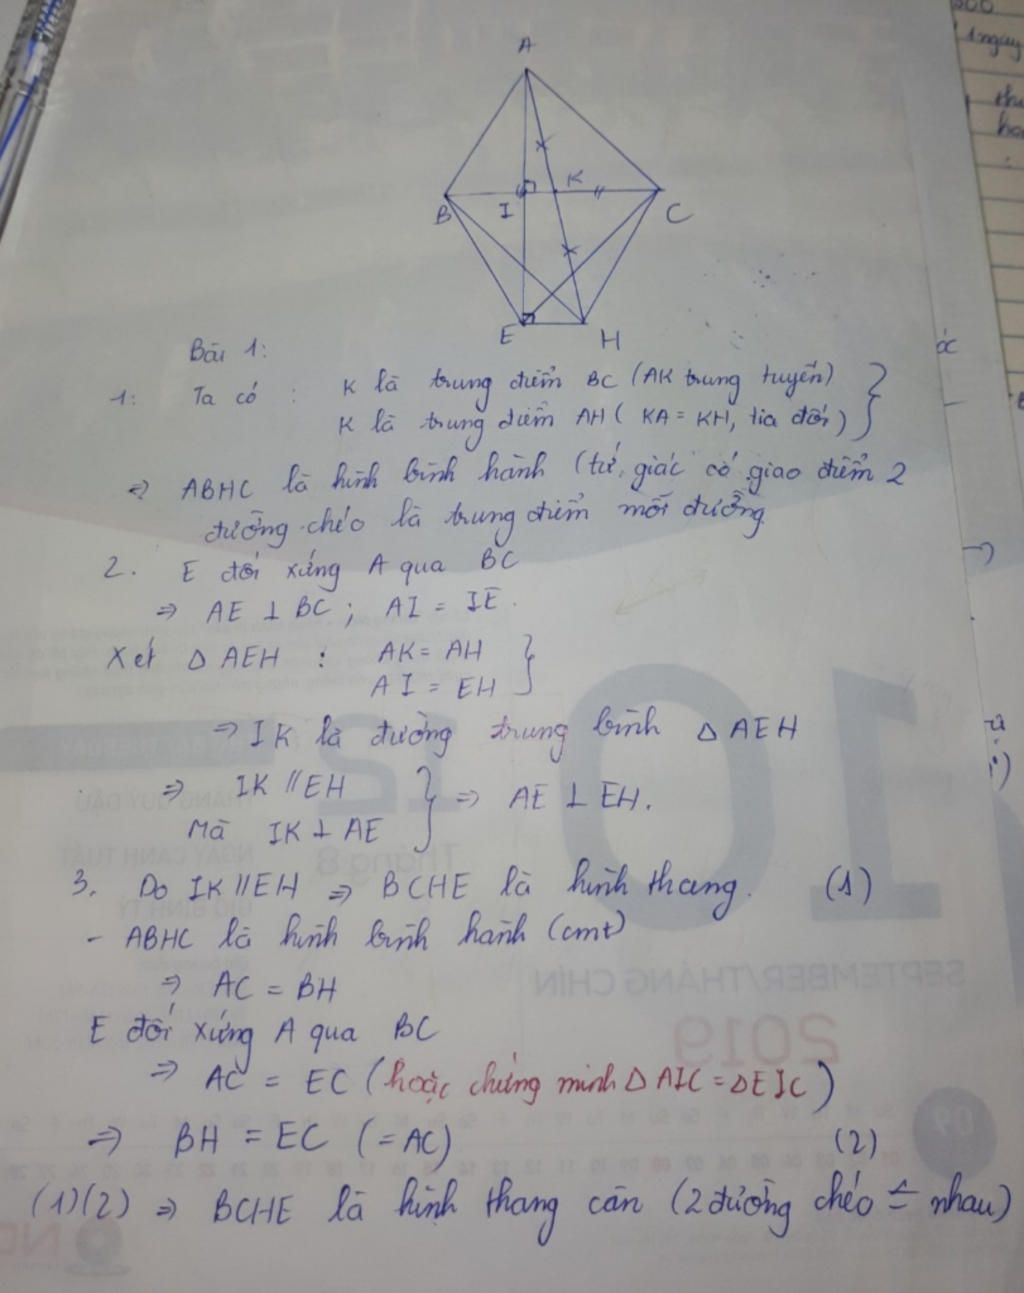 A
K
B
I
C
E
H
Bài 1:
1: Ta có : K là trung điểm BC (AK trung tuyến)
K là trung điểm AH ( KA = KH, tia đối )
=> ABHC là hình bình hành (tứ giác có giao điểm 2
đường chéo là trung điểm mỗi đường
2. E đối xứng A qua BC
=> AE ⊥ BC ; AI = IE.
Xét Δ AEH : AK = AH
AI = EH
=> IK là đường trung bình Δ AEH
=> IK // EH
Mà IK ⊥ AE
=> AE ⊥ EH.
3. Do IK // EH => BCHE là hình thang. (1)
- ABHC là hình bình hành (cmt)
=> AC = BH
E đối xứng A qua BC
=> AC = EC (hoặc chứng minh Δ AIC = Δ EIC)
=> BH = EC (= AC) (2)
(1)(2) => BCHE là hình thang cân (2 đường chéo = nhau)
10
12
Tháng 8
SEPTEMBER/THÁNG CHÍN
2019
09
NGÀY CANH TUẤT